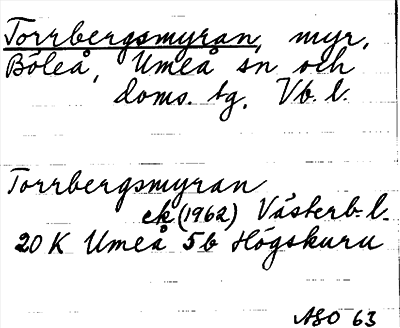 Torrbergsmyran, myr,
Böleå, Umeå sn och
doms. tg, Vb. l.
Torrbergsmyran
ek (1962) Västerb. l.
20 K Umeå 5b Högskuru
ASO 63